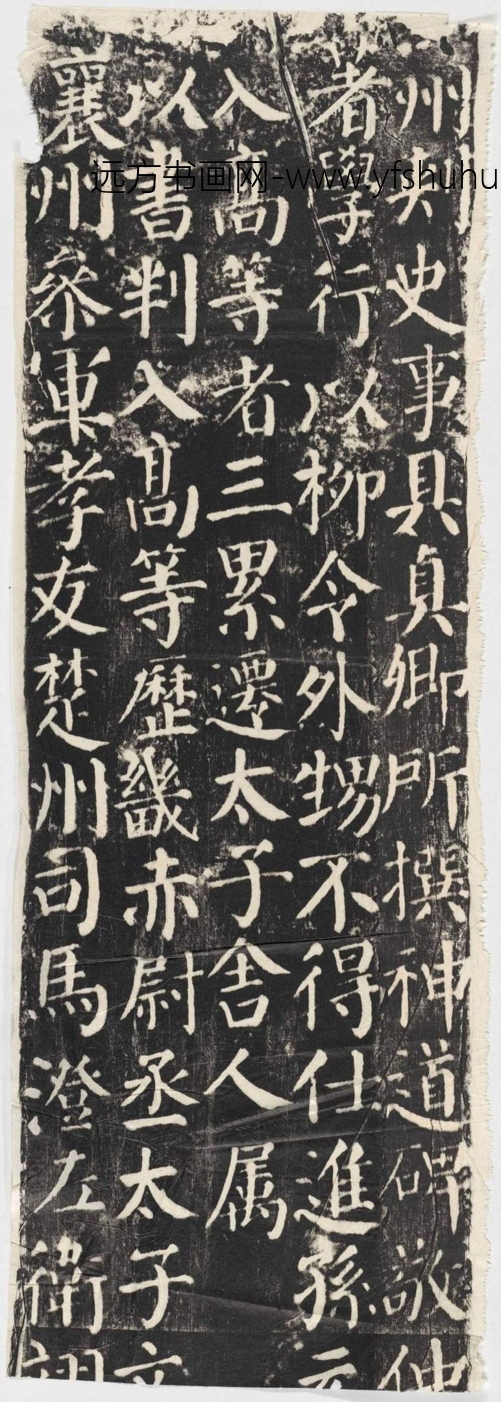 州刾史事具真卿所撰神道碑敬仲
著學行以柳令外甥不得仕進孫元
入高等者三累遷太子舍人属
以書判入髙等歷畿赤尉丞太子文
襄州叅軍孝友楚州司馬澄左衛翊
远方书画网-www.yfshuhu